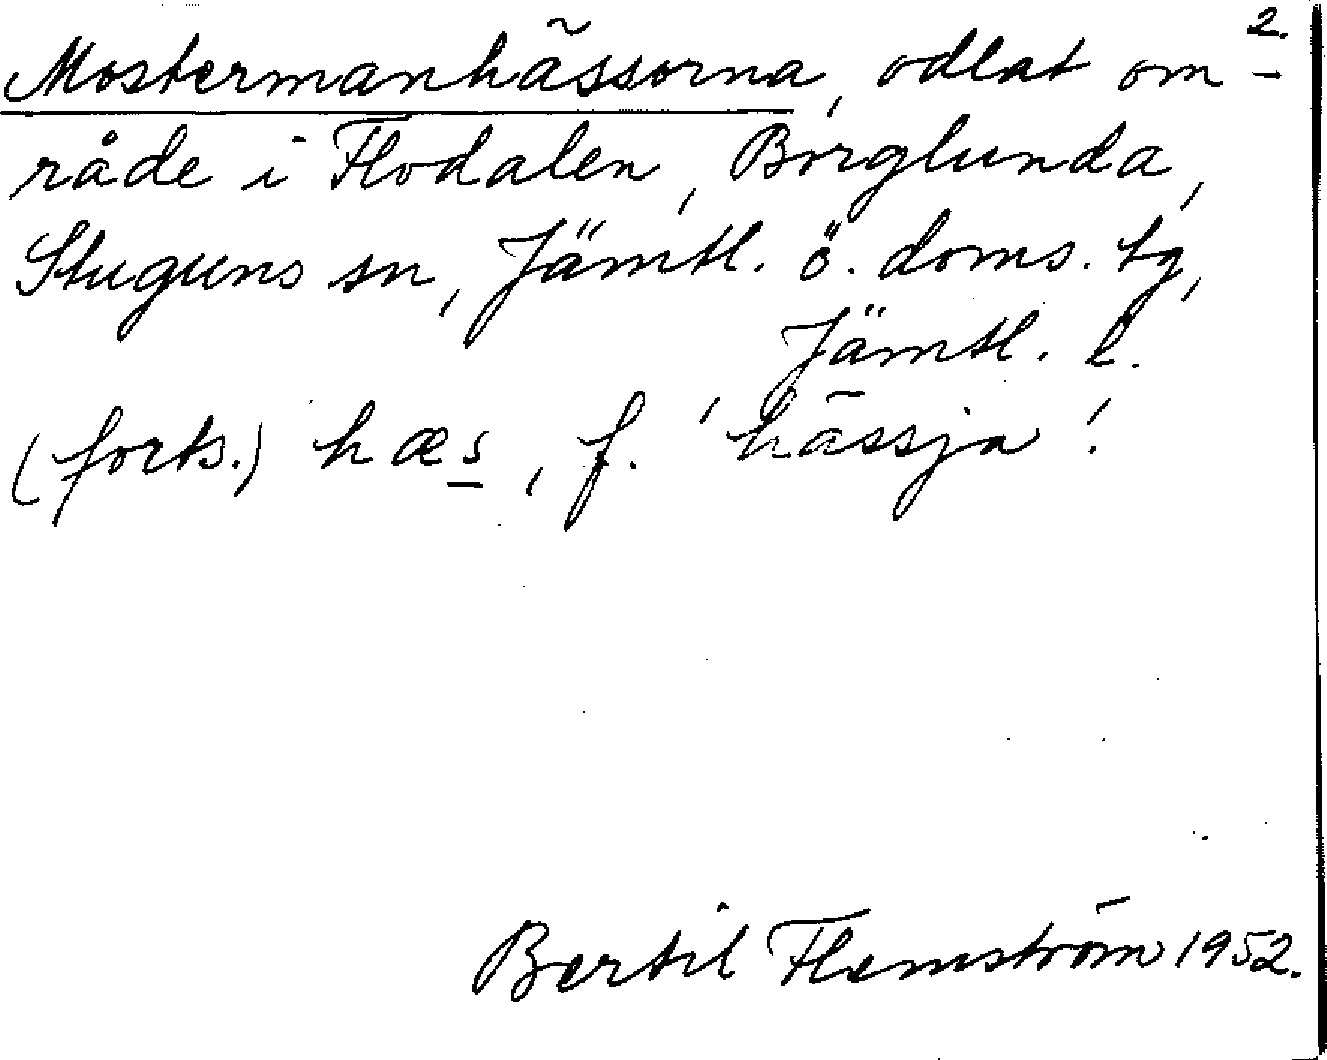 2.
Mostermanhässorna, odlat om-
råde i Flodalen, Borglunda,
Stuguns sn, Jämtl. ö. doms. tg,
Jämtl. l.
(forts.) hæs, f. 'hässja'.
Bertil Flemström 1952.